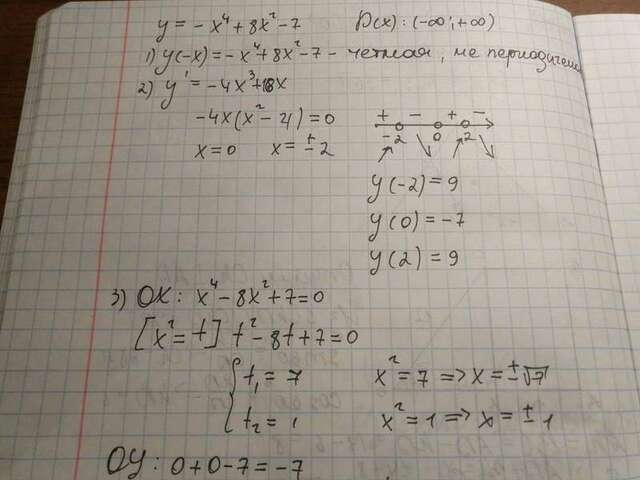 y = -x⁴ + 8x² - 7 D(x): (-∞; +∞)
1) y(-x) = -x⁴ + 8x² - 7 - четная, не периодическ
2) y' = -4x³ + 16x
-4x(x² - 4) = 0
x = 0 x = ±2
+ - + -
-2 0 2
↗ ↘ ↗ ↘
y(-2) = 9
y(0) = -7
y(2) = 9
3) OX: x⁴ - 8x² + 7 = 0
[x² = t] t² - 8t + 7 = 0
{ t₁ = 7 x² = 7 => x = ±√7
{ t₂ = 1 x² = 1 => x = ±1
OY: 0 + 0 - 7 = -7